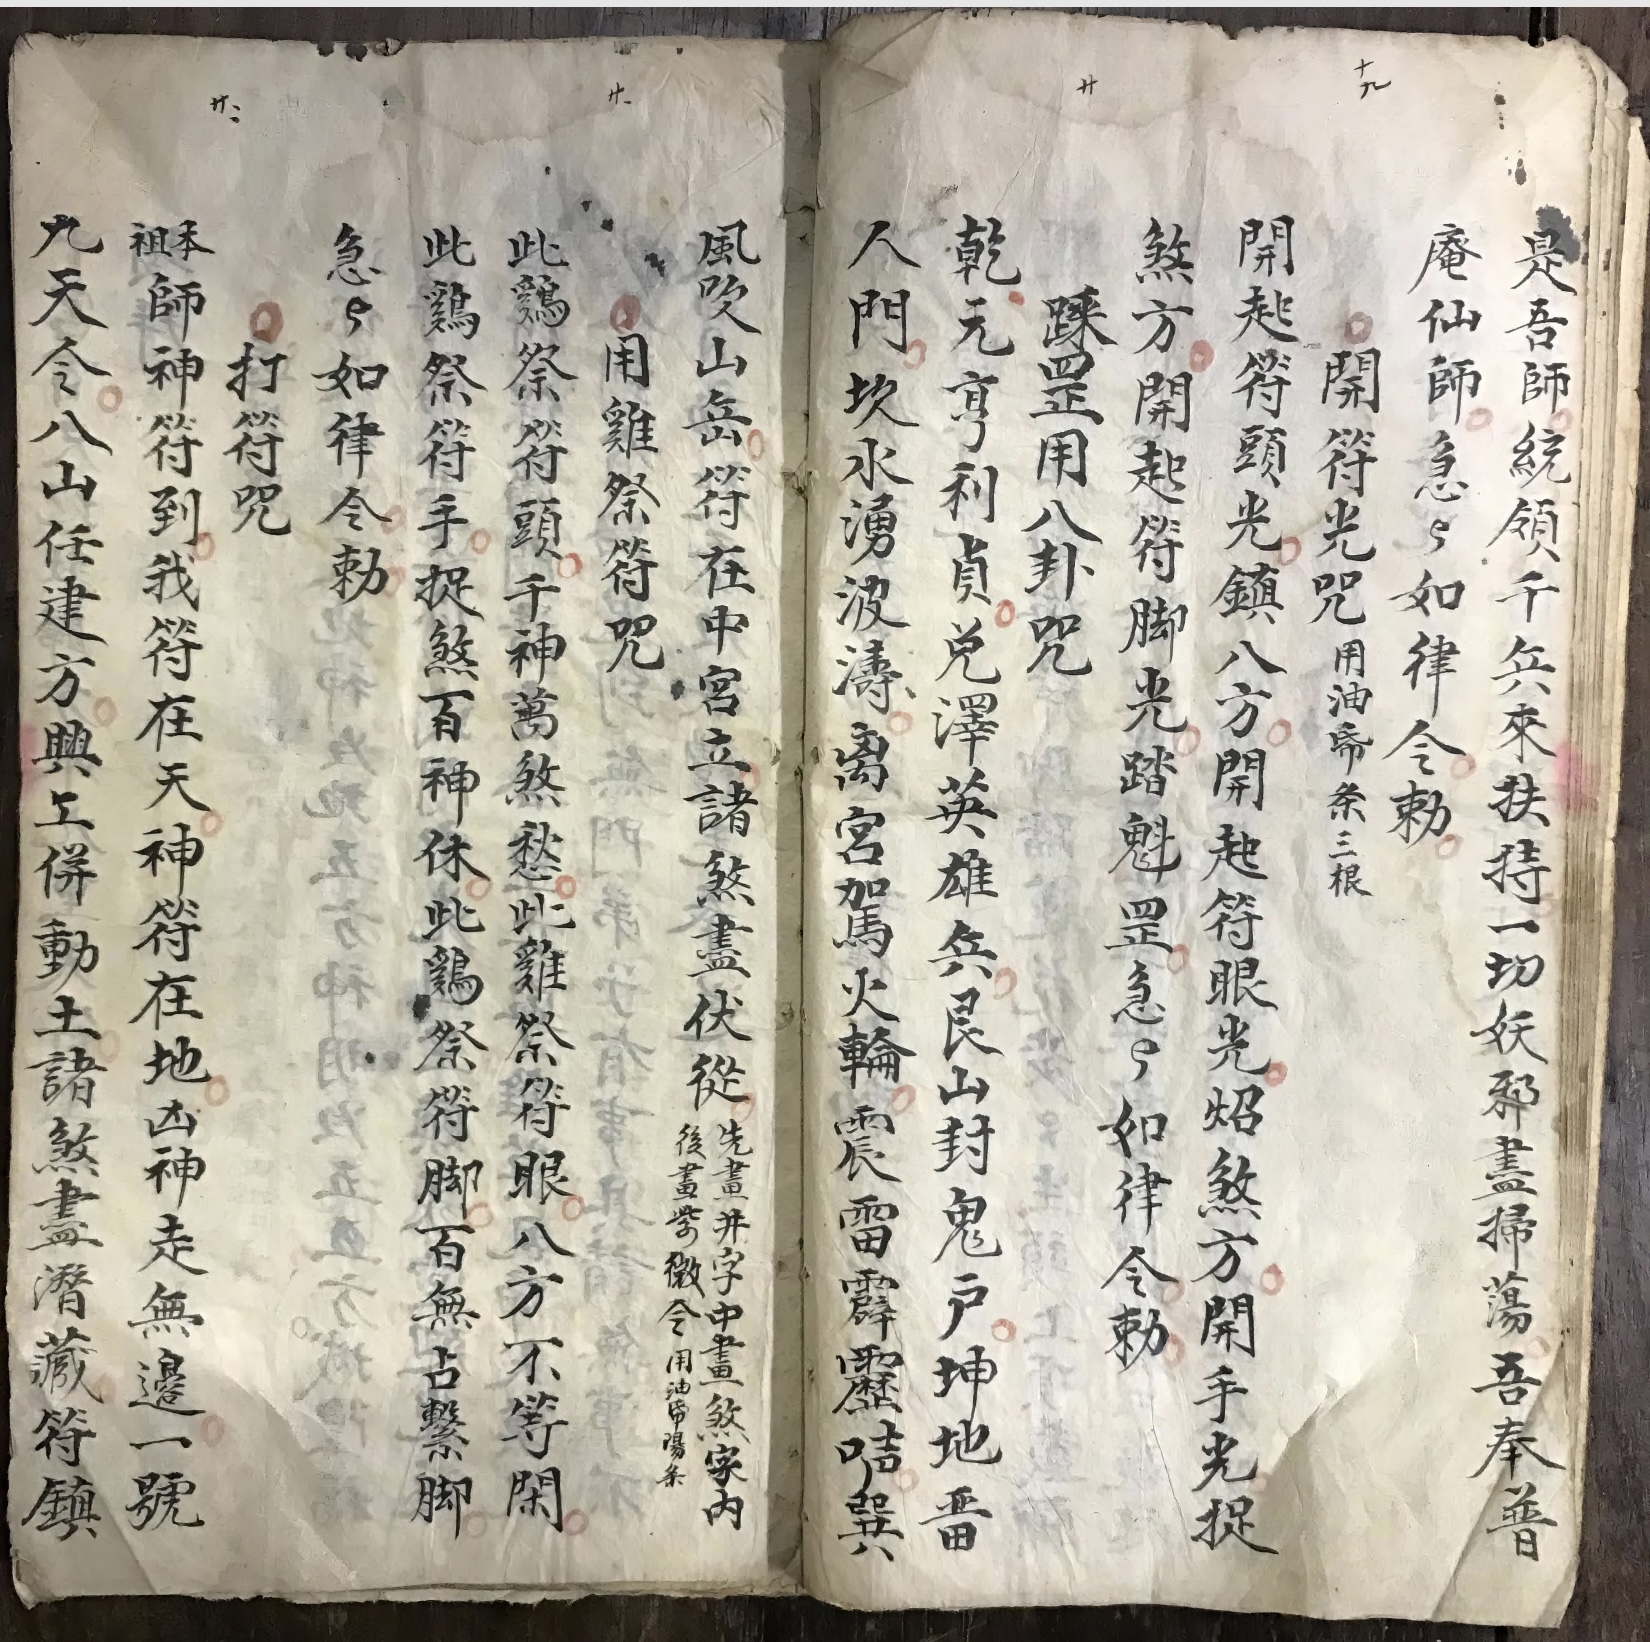 十九
是吾師統領千兵來扶持一切妖邪盡掃蕩吾奉普
庵仙師急々如律令勅
開符光咒 用油帋条三根
開起符頭光鎮八方開起符眼光炤煞方開手光捉
煞方開起符脚光踏魁罡急々如律令勅
廿
踩罡用八卦咒
乾元亨利貞兌澤英雄兵艮山封鬼户坤地畱
人門坎水湧波濤离宮加駕火輪震雷霹靂咭巽
廿一
風吹山岳符在中宮立諸煞盡伏從
先畫井字中畫煞字内
後畫紫微令用油帋陽条
用雞祭符咒
此鷄祭符頭千神萬煞愁此雞祭符眼八方不等閑
此鷄祭符手捉煞百神休此鷄祭符脚百無占繫脚
急々如律令勅
廿二
打符咒
本祖師神符到我符在天神符在地凶神走無邊一號
九天令八山任建方興工併動土諸煞盡潛藏符鎮